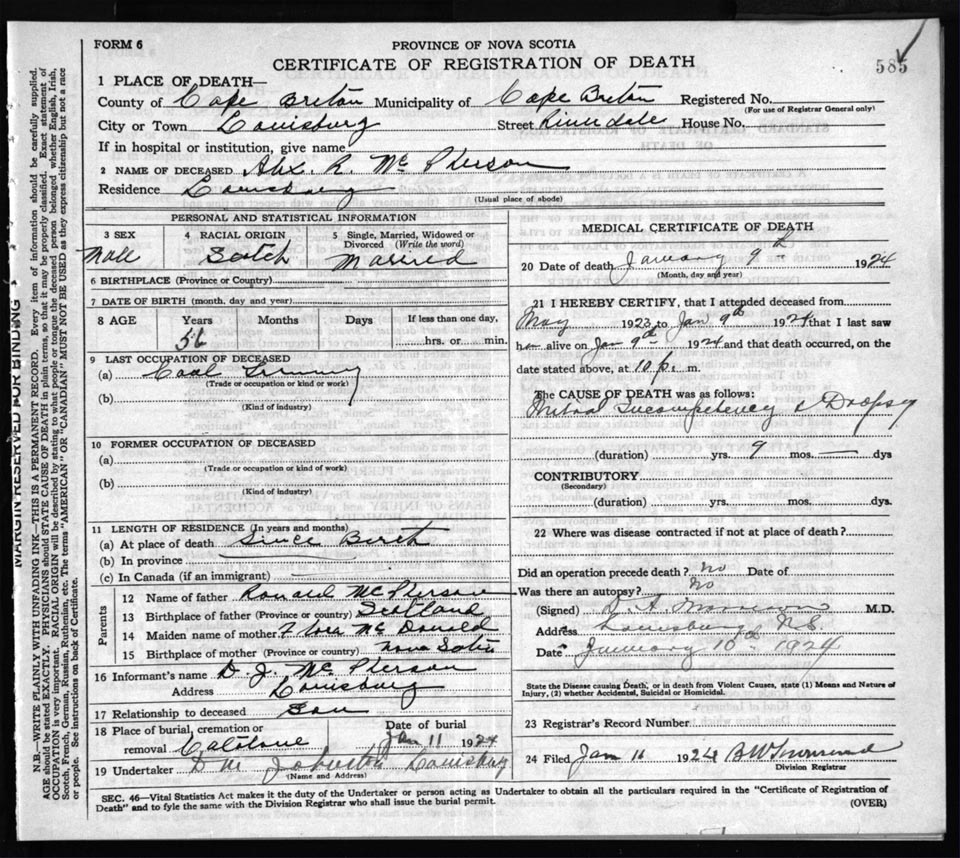 FORM 6
PROVINCE OF NOVA SCOTIA
CERTIFICATE OF REGISTRATION OF DEATH
585
1 PLACE OF DEATH—
County of Cape Breton Municipality of Cape Breton Registered No.
(For use of Registrar General only)
City or Town Louisburg Street House No.
If in hospital or institution, give name
2 NAME OF DECEASED Alex. R. McPherson
Residence Louisburg
(Usual place of abode)
PERSONAL AND STATISTICAL INFORMATION
3 SEX 4 RACIAL ORIGIN 5 Single, Married, Widowed or Divorced (Write the word)
Male Scotch Married
6 BIRTHPLACE (Province or Country)
7 DATE OF BIRTH (month, day and year)
8 AGE Years Months Days If less than one day,
56 hrs. or min.
9 LAST OCCUPATION OF DECEASED
(a) Coal
(Trade or occupation or kind or work)
(b)
(Kind of industry)
10 FORMER OCCUPATION OF DECEASED
(a)
(Trade or occupation or kind or work)
(b)
(Kind of industry)
11 LENGTH OF RESIDENCE (In years and months)
(a) At place of death Since Birth
(b) In province
(c) In Canada (if an immigrant)
Parents
12 Name of father Ronald McPherson
13 Birthplace of father (Province or country) Scotland
14 Maiden name of mother Flora McDonald
15 Birthplace of mother (Province or country) Nova Scotia
16 Informant's name D. J. McPherson
Address Louisburg
17 Relationship to deceased Son
18 Place of burial, cremation or removal Date of burial
Jan 11 1924
19 Undertaker D M Johnston Louisburg
(Name and Address)
MEDICAL CERTIFICATE OF DEATH
20 Date of death January 9th 1924
(Month, day and year)
21 I HEREBY CERTIFY, that I attended deceased from
May 1923 to Jan 9th 1924 that I last saw
h alive on Jan 9th 1924 and that death occurred, on
date stated above, at 10 p. m.
The CAUSE OF DEATH was as follows:
Mitral Incompetency & Dropsy
(duration) yrs. 9 mos. — dys
CONTRIBUTORY
(Secondary)
(duration) yrs. mos. dys.
22 Where was disease contracted if not at place of death?
Did an operation precede death? No Date of
Was there an autopsy? No
(Signed) M.D.
Address Louisburg N.S.
Date January 10th 1924
State the Disease causing Death, or in death from Violent Causes, state (1) Means and Nature of
Injury, (2) whether Accidental, Suicidal or Homicidal.
23 Registrar's Record Number
24 Filed Jan 11 1924 B W Townsend
Division Registrar
SEC. 46—Vital Statistics Act makes it the duty of the Undertaker or person acting as Undertaker to obtain all the particulars required in the "Certificate of Registration of
Death" and to fyle the same with the Division Registrar who shall issue the burial permit.
(OVER)
MARGIN RESERVED FOR BINDING
N.B.—WRITE PLAINLY WITH UNFADING INK—THIS IS A PERMANENT RECORD. Every item of information should be carefully supplied.
AGE should be stated EXACTLY. PHYSICIANS should STATE CAUSE OF DEATH in plain terms, so that it may be properly classified. Exact statement of
OCCUPATION is very important. RACIAL ORIGIN will be described by stating to what people or tongue the deceased person belonged whether English, Irish,
Scotch, French, German, Russian, Ruthenian, etc. The terms "AMERICAN" OR "CANADIAN" MUST NOT BE USED as they express citizenship but not a race
or people. See instructions on back of Certificate.